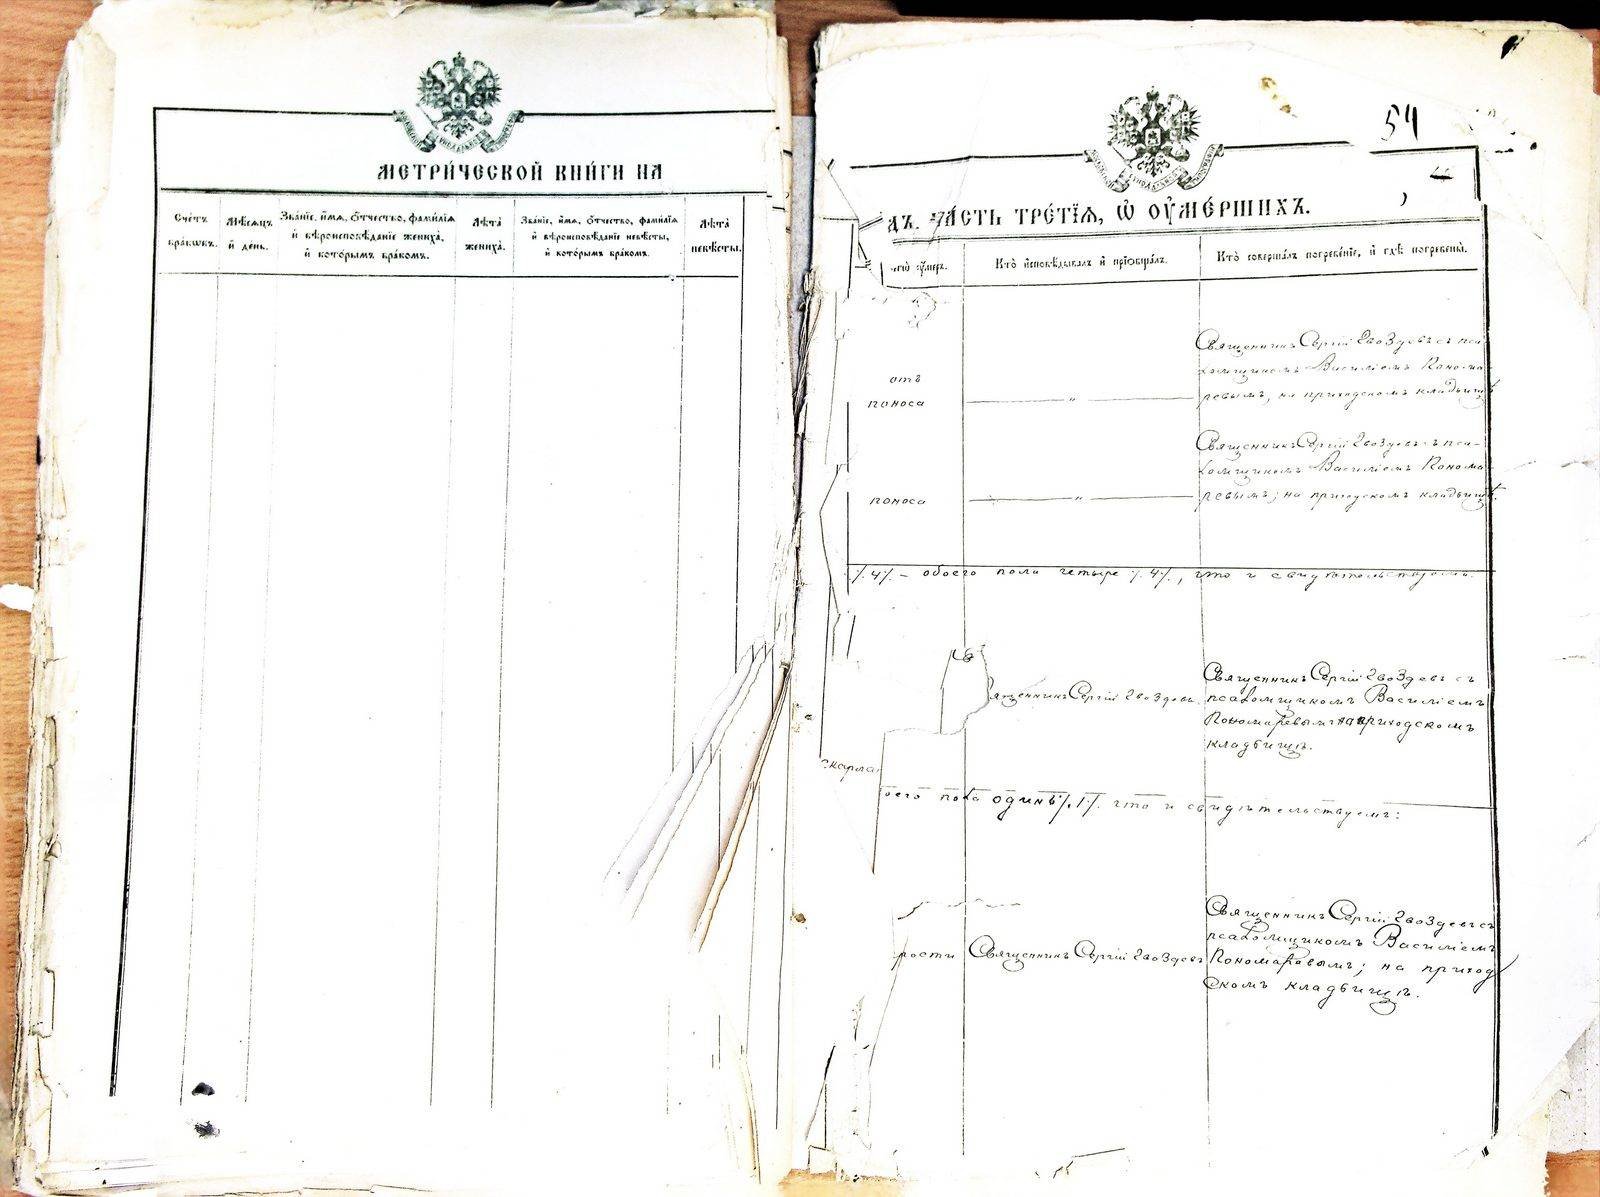 МЕТРИ́ЧЕСКОЙ КНИ́ГИ НА
Сче́тъ бра́кωвъ.
Мѣ́сяцъ и҆ де́нь.
Зва́нїе, и҆́мѧ, ѻ҆́тчество, фами́лїѧ и҆ вѣроисповѣ́данїе жениха̀, и҆ кото́рымъ бра́комъ.
Лѣ́та жениха̀.
Зва́нїе, и҆́мѧ, ѻ҆́тчество, фами́лїѧ и҆ вѣроисповѣ́данїе невѣ́сты, и҆ кото́рымъ бра́комъ.
Лѣ́та невѣ́сты.
54
дъ. ЧА́СТЬ ТРЕ́ТЇѦ, Ѡ҆ ОУ҆МЕ́РШИХЪ.
чегѡ̀ оу҆́меръ.
Кто̀ и҆сповѣ́дывалъ и҆ прїѻбща́лъ.
Кто̀ соверша́лъ погребе́нїе, и҆ гдѣ̀ погребены̀.
отъ
поноса
"
Священникъ Сергій Гвоздевъ съ пса-
ломщикомъ Василіемъ Понома-
ревымъ, на приходскомъ кладбищѣ
поноса
"
Священникъ Сергій Гвоздевъ съ пса-
ломщикомъ Василіемъ Понома-
ревымъ; на приходскомъ кладбищѣ.
٪4٪ – обоего пола четыре ٪4٪, что и свидѣтельствуемъ.
скарла
ященникъ Сергій Гвоздевъ
Священникъ Сергій Гвоздевъ съ
псаломщикомъ Василіемъ
Пономаревымъ на приходскомъ
кладбищѣ.
оего пола одинъ ٪1٪ что и свидѣтельствуемъ:
рости
Священникъ Сергій Гвоздевъ
Священникъ Сергій Гвоздевъ съ
псаломщикомъ Василіемъ
Пономаревымъ; на приход
скомъ кладбищѣ.